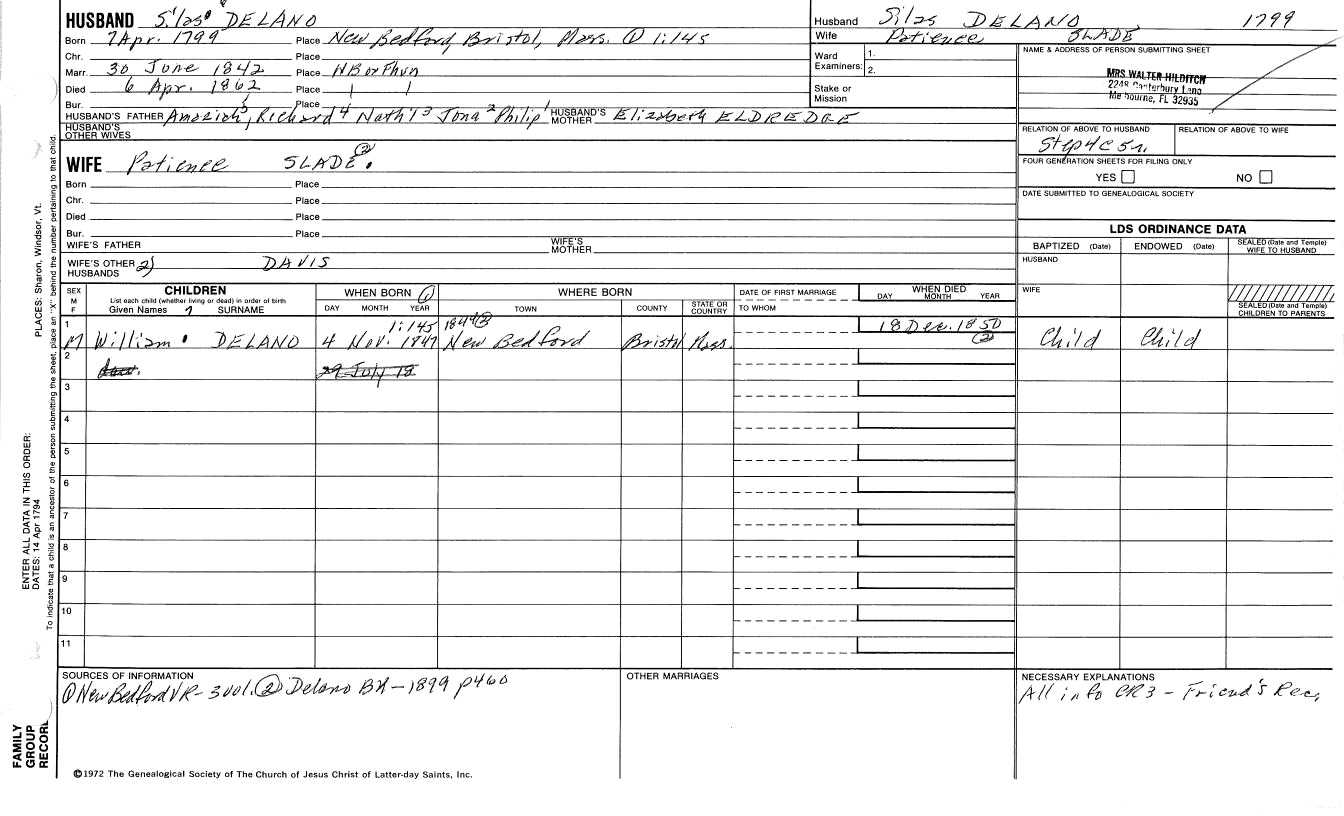 HUSBAND Silas DELANO
Born 7 Apr. 1799 Place New Bedford, Bristol, Mass. ① 1:145
Chr. Place
Marr. 30 June 1842 Place NB or Fhvn
Died 6 Apr. 1862 Place
Bur. Place
HUSBAND'S FATHER Amaziah5, Richard4 Nath'l3 Jona2 Philip1 HUSBAND'S MOTHER Elizabeth ELDREDGE
HUSBAND'S OTHER WIVES
WIFE Patience SLADE ②.
Born Place
Chr. Place
Died Place
Bur. Place
WIFE'S FATHER WIFE'S MOTHER
WIFE'S OTHER HUSBANDS 2) DAVIS
Husband Silas DELANO 1799
Wife Patience SLADE
Ward Examiners: 1. 2.
Stake or Mission
NAME & ADDRESS OF PERSON SUBMITTING SHEET
MRS WALTER HILDITCH
2248 Canterbury Lane
Melbourne, FL 32935
RELATION OF ABOVE TO HUSBAND RELATION OF ABOVE TO WIFE
Step4C5r.
FOUR GENERATION SHEETS FOR FILING ONLY
YES NO
DATE SUBMITTED TO GENEALOGICAL SOCIETY
LDS ORDINANCE DATA
BAPTIZED (Date) ENDOWED (Date) SEALED (Date and Temple) WIFE TO HUSBAND
HUSBAND
WIFE
SEALED (Date and Temple) CHILDREN TO PARENTS
SEX M F
CHILDREN
List each child (whether living or dead) in order of birth
Given Names SURNAME
WHEN BORN ①
DAY MONTH YEAR
WHERE BORN
TOWN COUNTY STATE OR COUNTRY
DATE OF FIRST MARRIAGE
TO WHOM
WHEN DIED
DAY MONTH YEAR
1 M William DELANO 4 Nov. 1847 1:145 1844② New Bedford Bristol Mass. 18 Dec. 1850 ② Child Child
2 29 July 18
3
4
5
6
7
8
9
10
11
SOURCES OF INFORMATION
① New Bedford VR - 3 vol. ② Delano BK - 1899 p460
OTHER MARRIAGES
NECESSARY EXPLANATIONS
All info CR3 - Friend's Rec.
©1972 The Genealogical Society of The Church of Jesus Christ of Latter-day Saints, Inc.
FAMILY GROUP RECORD
ENTER ALL DATA IN THIS ORDER:
DATES: 14 Apr 1794
PLACES: Sharon, Windsor, Vt.
To indicate that a child is an ancestor of the person submitting the sheet, place an "X" behind the number pertaining to that child.